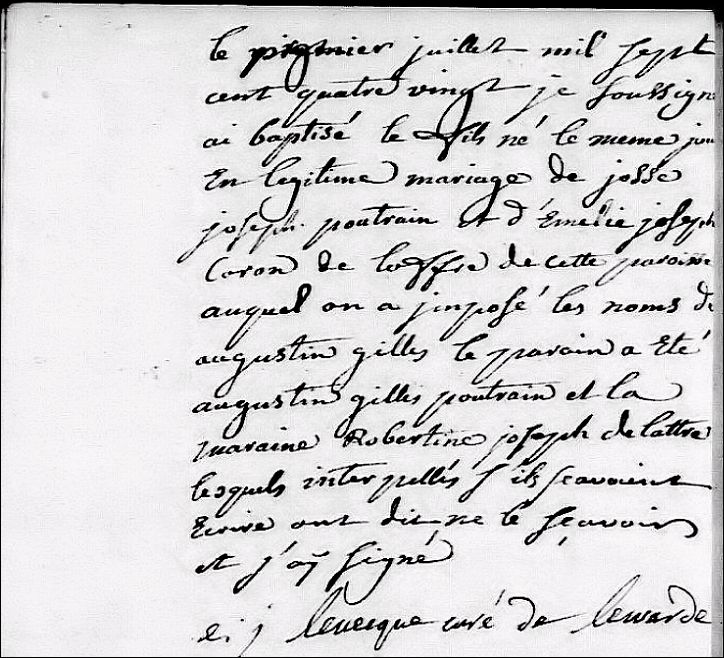 le premier juillet mil sept
cent quatre vingt je soussigné
ai baptisé le fils né le meme jour
En legitime mariage de josse
joseph poutrain et d'Emelie joseph
Caron de loffre de cette paroisse
auquel on a jmposé les noms de
augustin gilles le parain a Eté
augustin gilles poutrain et la
maraine Robertine joseph delattre
lesquels interpellés s'ils scavoient
Ecrire ont dit ne le scavoir
et j'aÿ signé
j levecque curé de lewarde